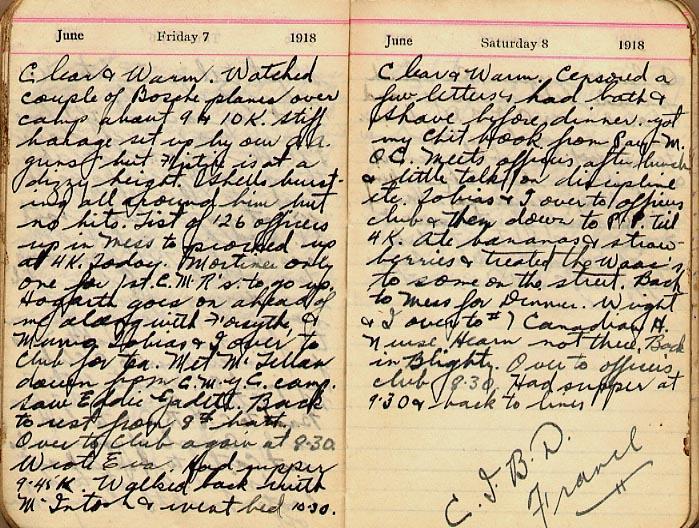 June Friday 7 1918
Clear & Warm. Watched
couple of Bosche planes over
camp about 9 & 10 K. Stiff
barage set up by our A.A.
guns but Fritz is at a
dizzy height. Shells burst-
ing all around him but
no hits. List of 126 officers
up in Mess to proceed up
at 4 K. Today. Mortimer only
one for 1st. C.M.R's. to go up.
Hogarth goes on ahead of
me along with Forsythe, &
Munro Tobias & I over to
Club for tea. Met McLellan
down from C.M.G.C. camp.
Saw Eddie Gadets. Back
to rest from
Over to Club again at 9.30.
Wrote Eva. Had supper
9.45 K. Walked back with
McIntosh & went bed 10.30.
June Saturday 8 1918
Clear & Warm. Censored a
few letters & had bath &
shave before dinner. got
my chit book from Pay M.
O C. Meets officers after lunch
& little talk on discipline
etc. Tobias & I over to officers
club & then down to P.P. till
4 K. Ate bananas & straw-
berries & treated the Waac's
to some on the street. Back
to Mess for Dinner. Wright
& I over to #7 Canadian H.
Nurse Hearn not there. Back
in Blighty. Over to officers
club 8.30. Had supper at
9.30 & back to lines
C. I. B. D.
France